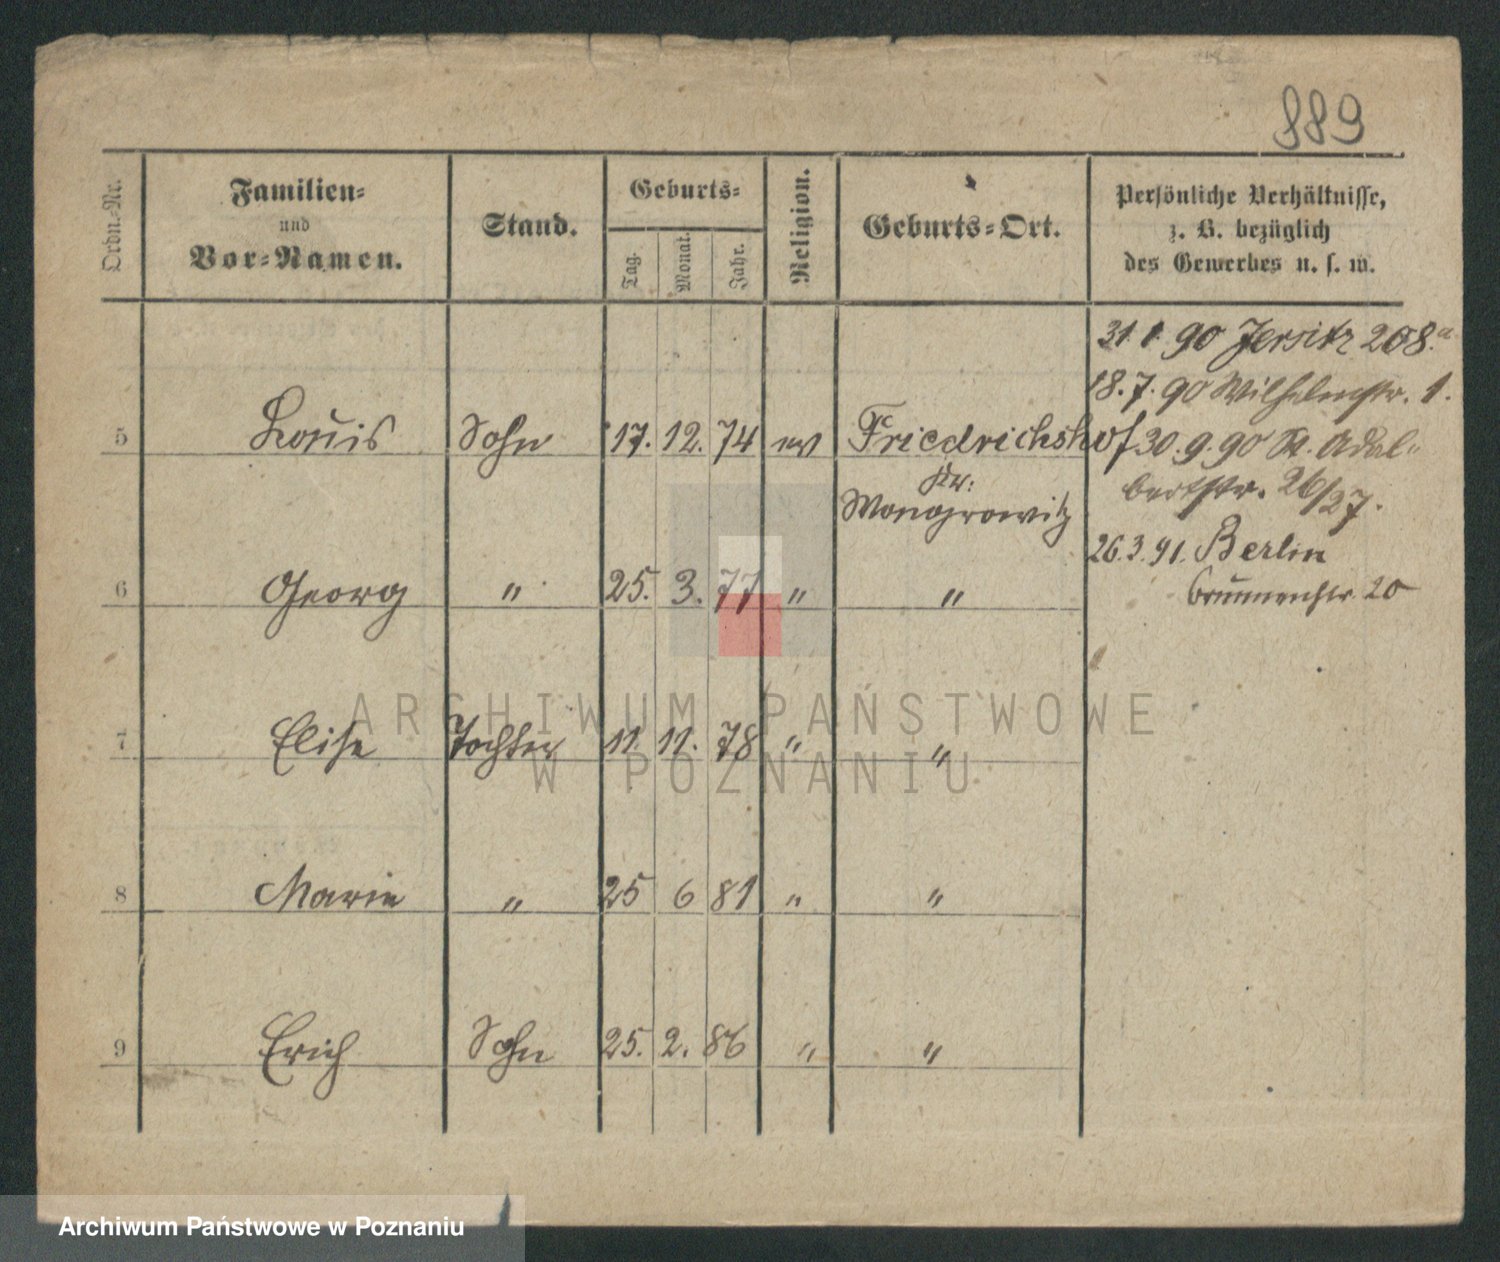 889
Ordn.-Nr.
Familien-
und
Vor-Namen.
Stand.
Geburts-
Tag.
Monat.
Jahr.
Religion.
Geburts-Ort.
Persönliche Verhältnisse,
z. B. bezüglich
des Gewerbes u. s. w.
31. 1. 90 Jersitz 208.a
18. 7. 90 Wilhelmstr. 1.
5 Louis Sohn 17. 12. 74 ev Friedrichshof
30. 9. 90 St. Adal-
Kr:
Wongrowitz
bertstr. 26/27.
26. 3. 91. Berlin
6 Georg " 25. 3. 77 " "
Brunnenstr. 20
7 Elise Tochter 11. 11. 78 " "
8 Marie " 25 6 81 " "
9 Erich Sohn 25. 2. 86 " "
ARCHIWUM PAŃSTWOWE
W POZNANIU
Archiwum Państwowe w Poznaniu